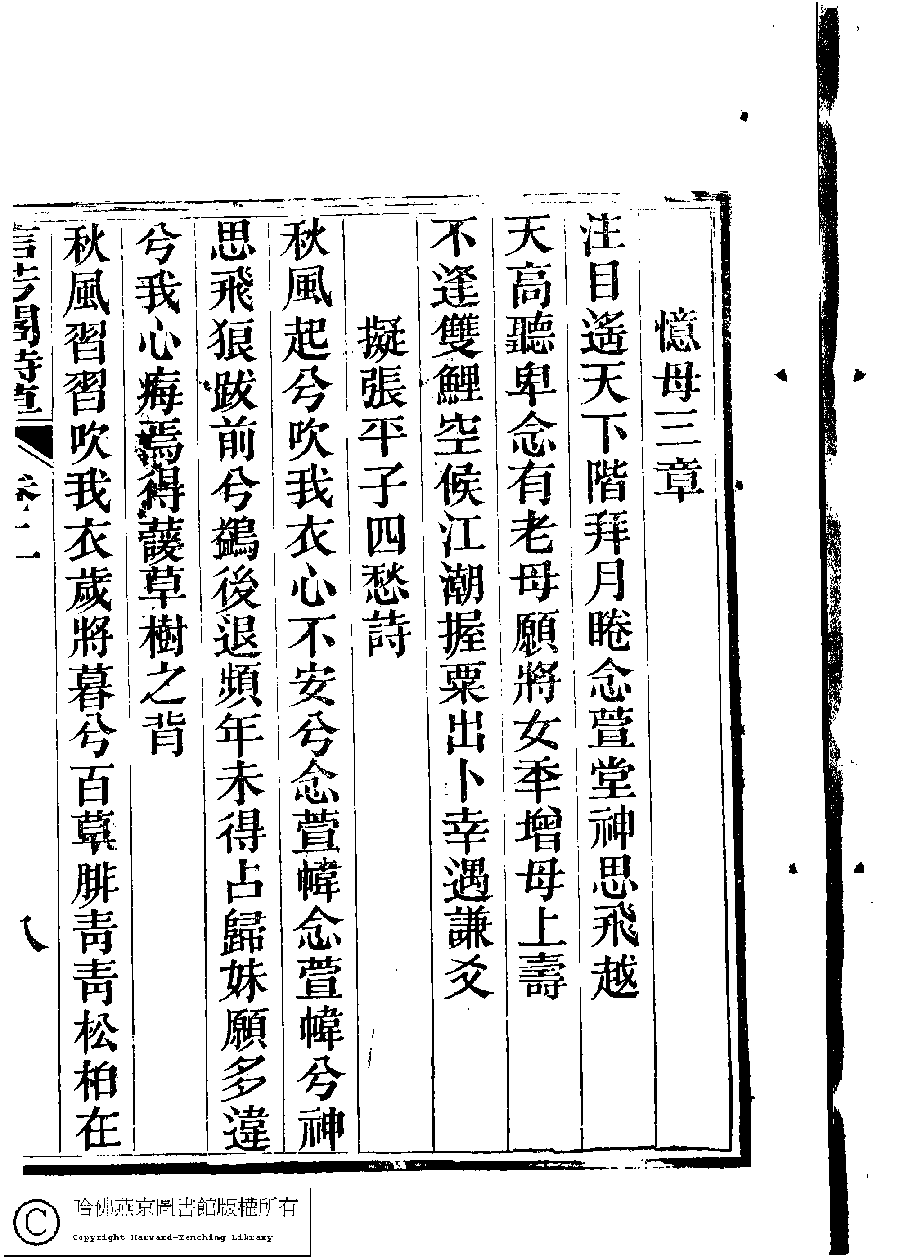 憶母三章
注目遙天下階拜月睠念萱堂神思飛越
天高聽卑念有老母願將女年增母上壽
不逢雙鯉空候江潮握粟出卜幸遇謙爻
擬張平子四愁詩
秋風起兮吹我衣心不安兮念萱幃念萱幃兮神
思飛狼跋前兮鷁後退頻年未得占歸妹願多違
兮我心痗焉得蘐草樹之背
秋風習習吹我衣歲將暮兮百草腓靑靑松柏在
言芳閣詩草
卷二
八
哈佛燕京圖書館版權所有
Copyright Harvard-Yenching Library